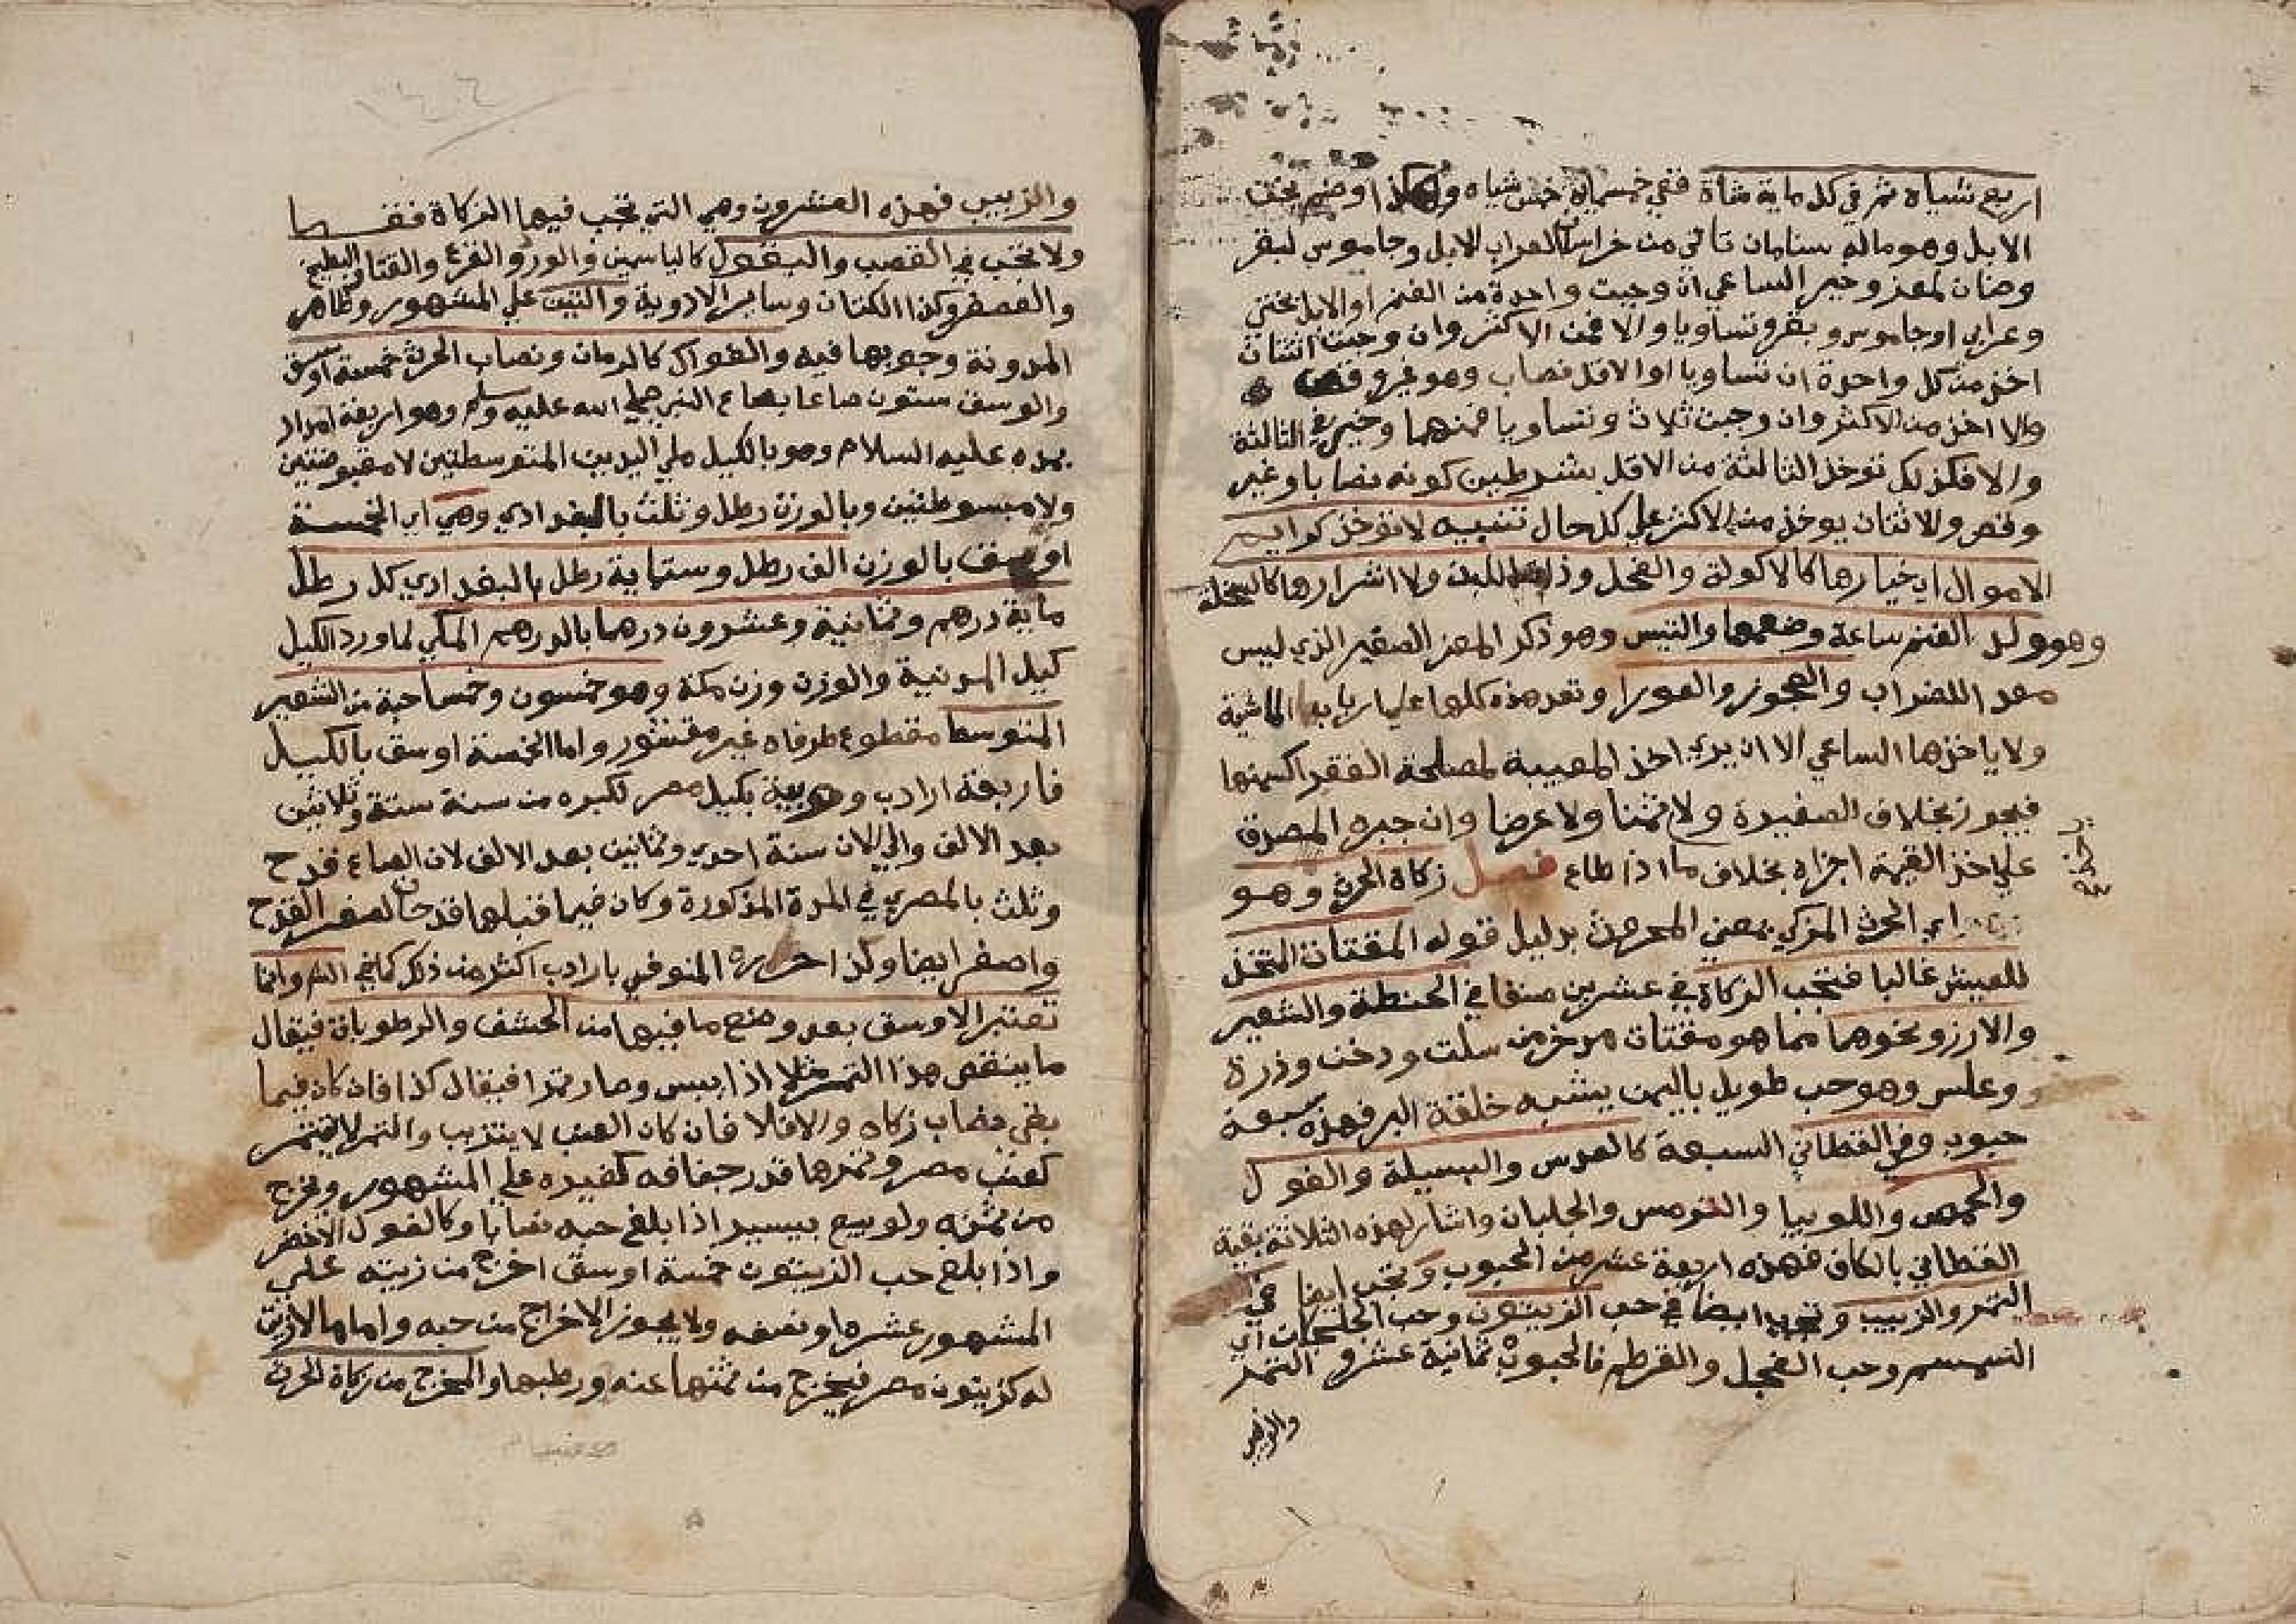 اربع شياه ثم في كل ماية شاة ففي خمسماية خمس شياه وهكذا وضم بخت
الابل وهو ماله سنامان تاتي من خراسان لعراب الابل وجاموس لبقر
وضان لمعز وخير الساعي ان وجبت واحدة من الغنم او الابل بختي
وعرابي او جاموس وبقر وتساويا والا فمن الاكثر وان وجبت اثنتان
اخذ من كل واحدة ان تساويا او الاقل نصاب وهو غير وقص
والا اخذ من الاكثر وان وجبت ثلاث وتساويا فمنهما وخير في الثالثة
والا فكذلك توخذ الثالثة من الاقل بشرطين كونه نصابا وغير
وقص والاثنتان يوخذ من الاكثر على كل حال تنبيه لا توخذ كرايم
الاموال اي خيارها كالاكولة والفحل وذات اللبن ولا اشرارها كالسخلة
وهو ولد الغنم ساعة وضعها والتيس وهو ذكر المعز الصغير الذي ليس
معد اللضراب والعجوز والعورا وتعد هذه كلها على اربابها الماشية
ولا ياخذها الساعي الا ان يري اخذ المعيبة لمصلحة الفقرا كسمنها
فيجوز بخلاف الصغيرة ولا ثمنا ولا عرضا وان جبره المصدق
علي اخذ القيمة اجزاه بخلاف ما اذا طاع فصل زكاة الحرث وهو
اي الحرث المزكي بمعني المحروث بدليل قوله المقتات المتخذ
للعيش غالبا فتجب الزكاة في عشرين صنفا في الحنطة والشعير
والارز ونحوهما مما هو مقتات مدخر من سلت ودخن وذرة
وعلس وهو حب طويل باليمن يشبه خلقة البر فهذه سبعة
حبوب وفي القطاني السبعة كالعدس والبسيلة والفول
والحمص واللوبيا والترمس والجلبان واشار لهذه الثلاثة بقية
القطاني بالكاف فهذه اربعة عشر من الحبوب وتجب ايضا في
التمر والزبيب وتجب ايضا في حب الزيتون وحب الجلجلان اي
السمسم وحب الفجل والقرطم فالحبوب ثمانية عشر والتمر
والزبيب
والزبيب فهذه العشرون وهي التي تجب فيها الزكاة فقـــها
ولا تجب في القصب والبقول كالياسمين والورد والقرع والقثا والبطيخ
والعصفر وكذا الكتان وساير الادوية والتين علي المشهور وظاهر
المدونة وجوبها فيه والفواكه كالرمان ونصاب الحرث خمسة اوسق
والوسق ستون صاعا بصاع النبي صلي الله عليه وسلم وهو اربعة امداد
بمده عليه السلام وهو بالكيل ملي اليدين المتوسطتين لا مقبوضتين
ولا مبسوطتين وبالوزن رطل وثلث بالبغدادي وهي اي الخمسة
اوسق بالوزن الف رطل وستماية رطل بالبغدادي كل رطل
ماية درهم وثمانية وعشرون درهما بالدرهم المكي لما ورد الكيل
كيل المدنية والوزن وزن مكة وهو خمسون وخمسا حبة من الشعير
المتوسط مقطوع طرفاه غير مقشور واما الخمسة اوسق بالكيل
فاربعة ارادب وويبة بكيل مصر لكبره من سنة ستة وثلاثين
بعد الالف والي الان سنة احدي وثمانين بعد الالف لان الصاع قدح
وثلث بالمصري في المدة المذكورة وكان فيما قبلها قدحان لصغر القدح
واصغر ايضا وكذا حرره المنوفي بارادب اكثر من ذلك كما في الشر وانما
تعتبر الاوسق بعد وضع ما فيها من الحشف والرطوبات فيقال
ما ينقص هذا التمر مثلا اذا يبس وصار تمرا فيقال كذا فان كان فيما
بقي نصاب زكاه والا فلا فان كان العنب لا يتزبب والتمر لا يتتمر
كعنب مصر وتمرها قدر جفافه كغيره علي المشهور وتخرج
من ثمنه ولو بيع بيسير اذا بلغ حبه نصابا وكالفول الاخضر
واذا بلغ حب الزيتون خمسة اوسق اخرج من زيته علي
المشهور عشره او نصفه ولا يجوز الاخراج من حبه واما ما لا زيت
له كزيتون مصر فيخرج من ثمنها عنه ورطبها والمخرج من زكاة الحرث